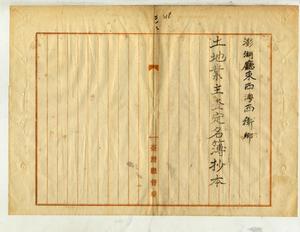 澎湖廳東西澳西衛鄉
土地業主查定名簿抄本
臺灣總督府